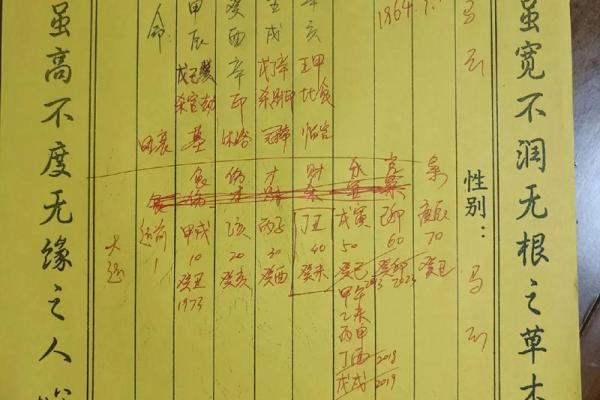 虽宽不润无根之草木
马云
性别：
马云
1964.
辛亥
壬甲
比食
临官
壬戌
戊辛
癸酉
辛
印
沐浴
甲辰
戊乙癸
杀官劫
墓
命
衰
官
财
才
食
庚辰
70
癸丑
己卯
60
癸卯
2023
戊寅
50
癸巳
2013
甲午
乙未
丙申
丁酉
2018
戊戌
2019
丁丑
40
癸未
丙子
30
癸酉
乙亥
20
癸亥
甲戌
10
癸丑
1973
运前
1
大运
虽高不度无缘之人